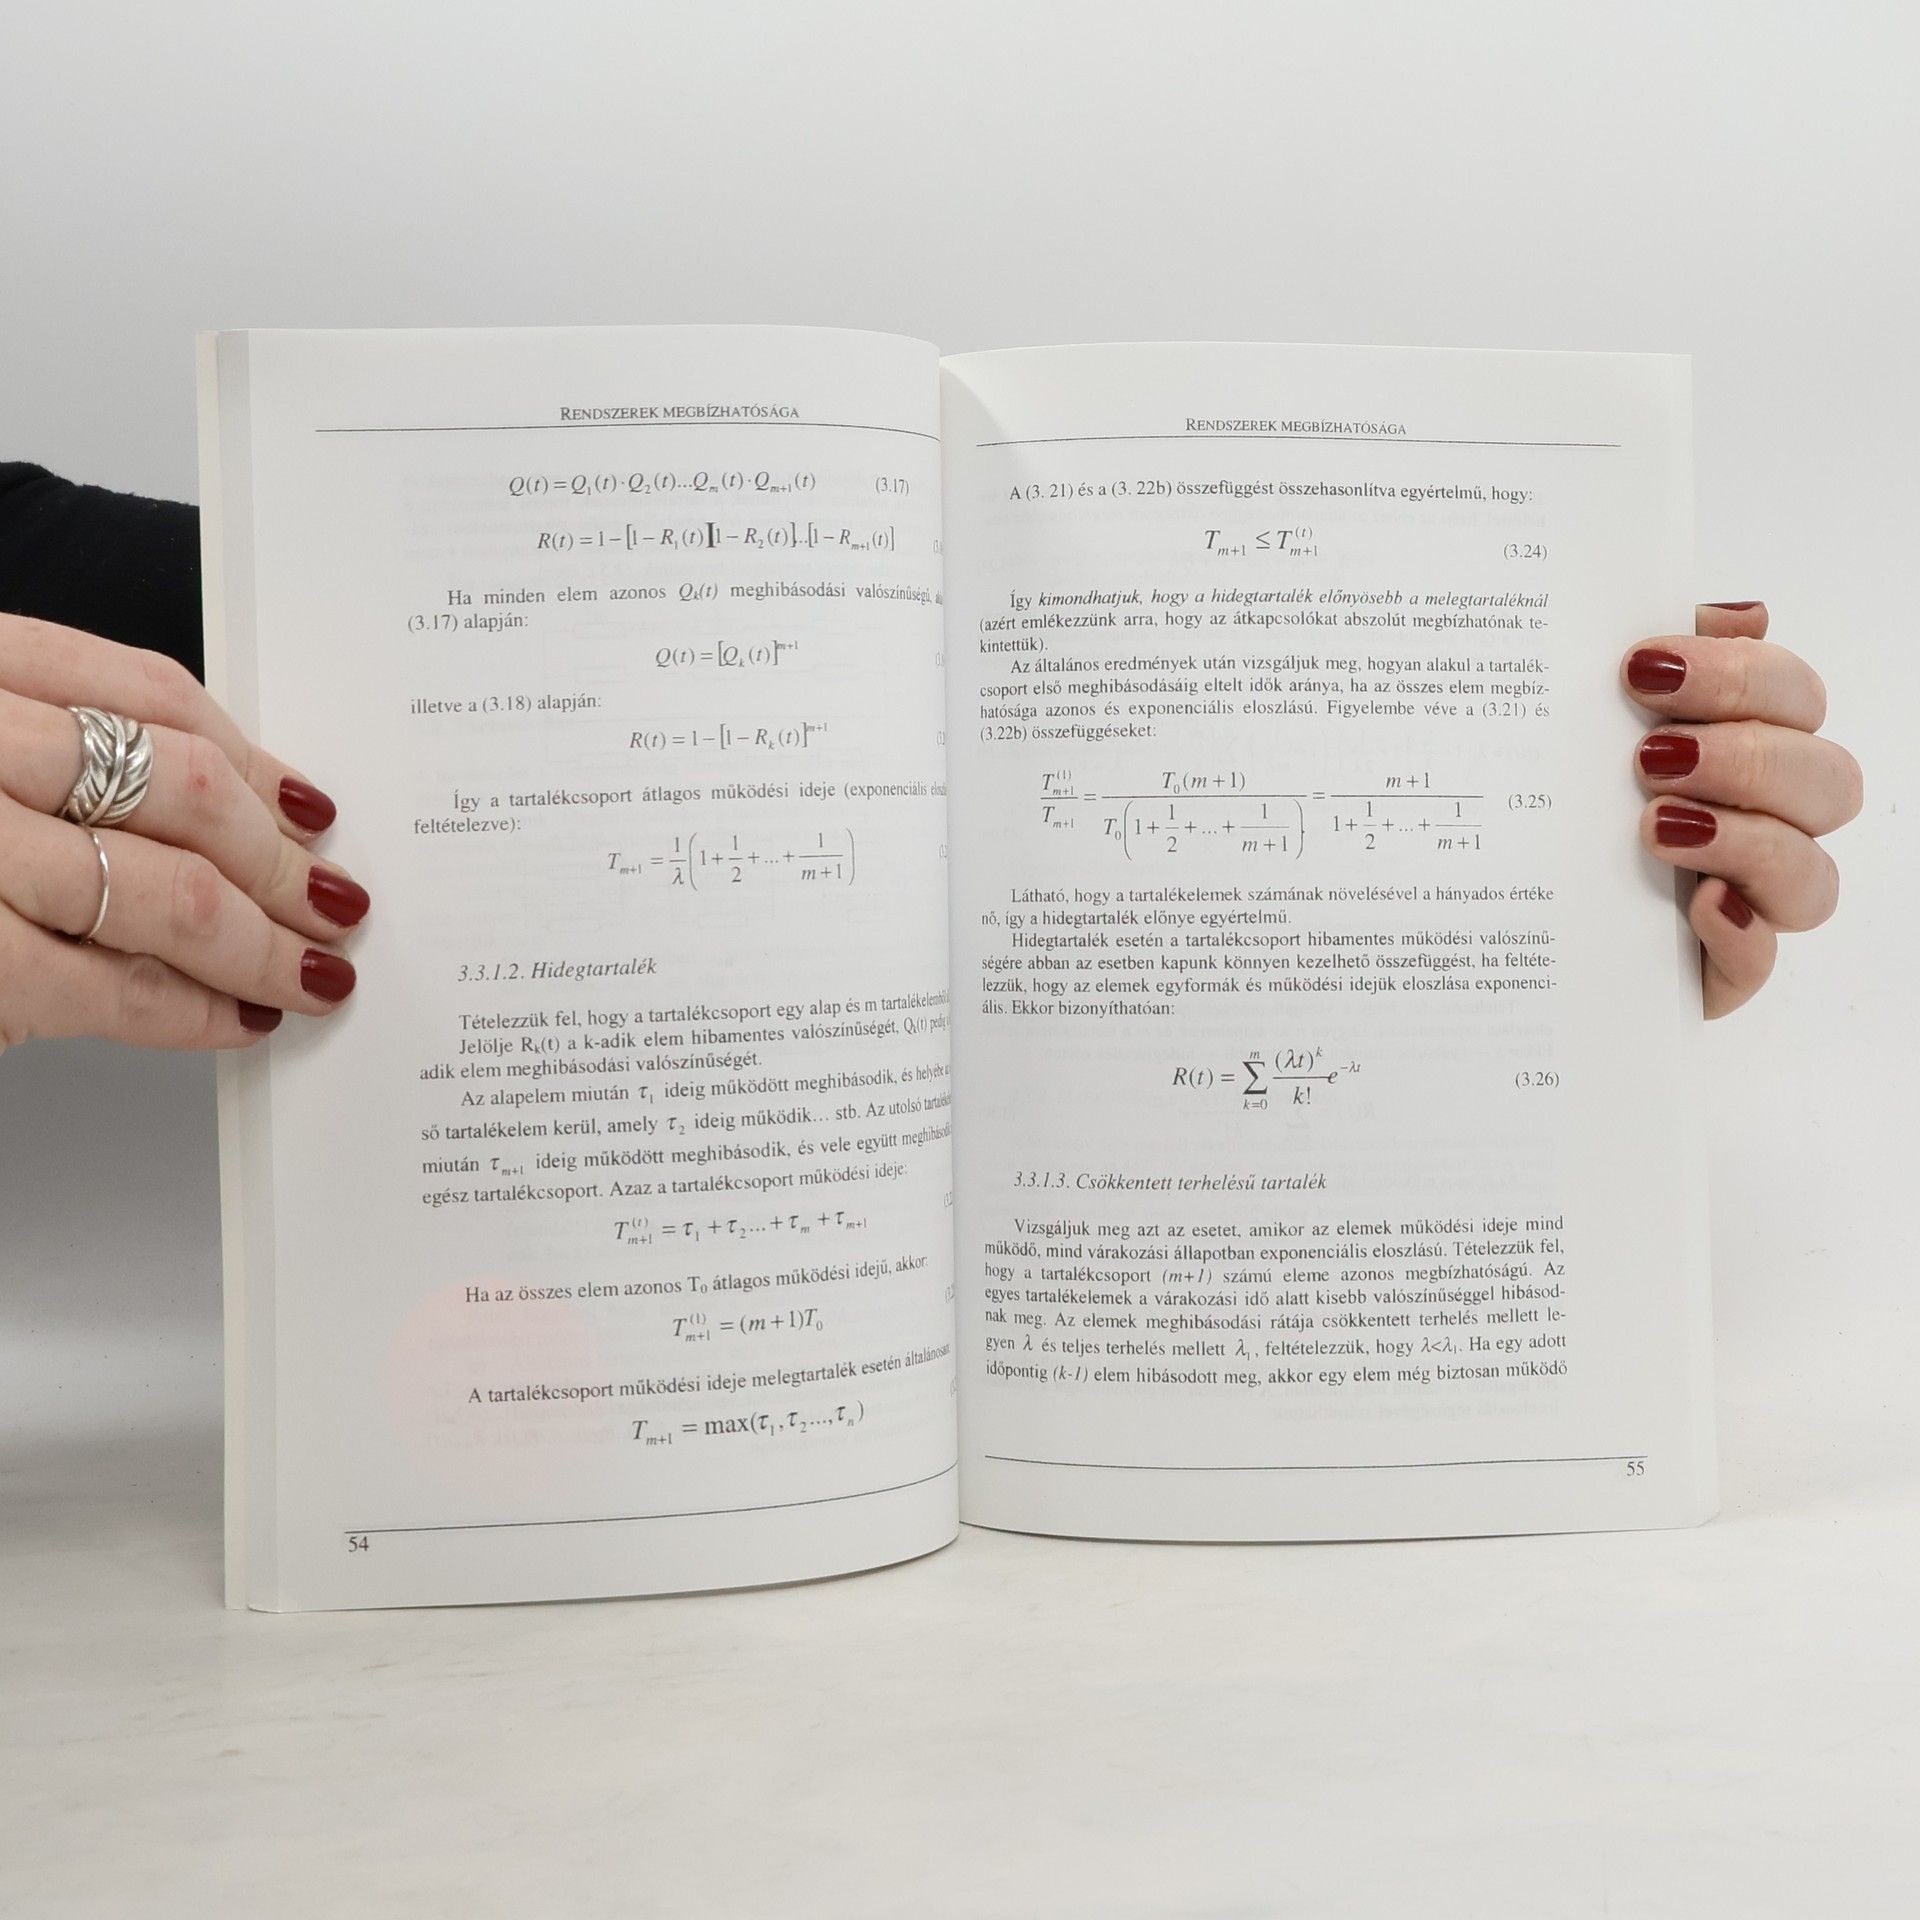 RENDSZEREK MEGBÍZHATÓSÁGA
Q(t) = Q₁(t)·Q₂(t)...Qₘ(t)·Qₘ₊₁(t) (3.17)
R(t) = 1−[1−R₁(t)][1−R₂(t)]...[1−Rₘ₊₁(t)]
Ha minden elem azonos Qₖ(t) meghibásodási valószínűségű,
(3.17) alapján:
Q(t) = [Qₖ(t)]ᵐ⁺¹
illetve a (3.18) alapján:
R(t) = 1−[1−Rₖ(t)]ᵐ⁺¹
Így a tartalékcsoport átlagos működési ideje (exponenciális
feltételezve):
Tₘ₊₁ = 1/λ (1 + 1/2 + ... + 1/(m+1))
3.3.1.2. Hidegtartalék
Tételezzük fel, hogy a tartalékcsoport egy alap és m
Jelölje Rₖ(t) a k-adik elem hibamentes valószínűségét, Qₖ(t) pedig
adik elem meghibásodási valószínűségét.
Az alapelem miután τ₁ ideig működött meghibásodik, és helyébe
ső tartalékelem kerül, amely τ₂ ideig működik... stb. Az utolsó
miután τₘ₊₁ ideig működött meghibásodik, és vele együtt
egész tartalékcsoport. Azaz a tartalékcsoport működési ideje:
Tₘ₊₁⁽ᵗ⁾ = τ₁ + τ₂... + τₘ + τₘ₊₁
Ha az összes elem azonos T₀ átlagos működési idejű, akkor:
Tₘ₊₁⁽¹⁾ = (m+1)T₀
A tartalékcsoport működési ideje melegtartalék esetén általánosan:
Tₘ₊₁ = max(τ₁, τ₂..., τₙ)
54
RENDSZEREK MEGBÍZHATÓSÁGA
A (3. 21) és a (3. 22b) összefüggést összehasonlítva egyértelmű, hogy:
Tₘ₊₁ ≤ Tₘ₊₁⁽ᵗ⁾ (3.24)
Így kimondhatjuk, hogy a hidegtartalék előnyösebb a melegtartaléknál
(azért emlékezzünk arra, hogy az átkapcsolókat abszolút megbízhatónak te-
kintettük).
Az általános eredmények után vizsgáljuk meg, hogyan alakul a tartalék-
csoport első meghibásodásáig eltelt idők aránya, ha az összes elem megbíz-
hatósága azonos és exponenciális eloszlású. Figyelembe véve a (3.21) és
(3.22b) összefüggéseket:
Tₘ₊₁⁽¹⁾/Tₘ₊₁ = T₀(m+1) / T₀(1 + 1/2 + ... + 1/(m+1)) = (m+1) / (1 + 1/2 + ... + 1/(m+1)) (3.25)
Látható, hogy a tartalékelemek számának növelésével a hányados értéke
nő, így a hidegtartalék előnye egyértelmű.
Hidegtartalék esetén a tartalékcsoport hibamentes működési valószínű-
ségére abban az esetben kapunk könnyen kezelhető összefüggést, ha feltéte-
lezzük, hogy az elemek egyformák és működési idejük eloszlása exponenci-
ális. Ekkor bizonyíthatóan:
R(t) = ∑ₖ₌₀ᵐ (λt)ᵏ/k! e⁻λᵗ (3.26)
3.3.1.3. Csökkentett terhelésű tartalék
Vizsgáljuk meg azt az esetet, amikor az elemek működési ideje mind
működő, mind várakozási állapotban exponenciális eloszlású. Tételezzük fel,
hogy a tartalékcsoport (m+1) számú eleme azonos megbízhatóságú. Az
egyes tartalékelemek a várakozási idő alatt kisebb valószínűséggel hibásod-
nak meg. Az elemek meghibásodási rátája csökkentett terhelés mellett le-
gyen λ és teljes terhelés mellett λ₁, feltételezzük, hogy λ<λ₁. Ha egy adott
időpontig (k-1) elem hibásodott meg, akkor egy elem még biztosan működő
55